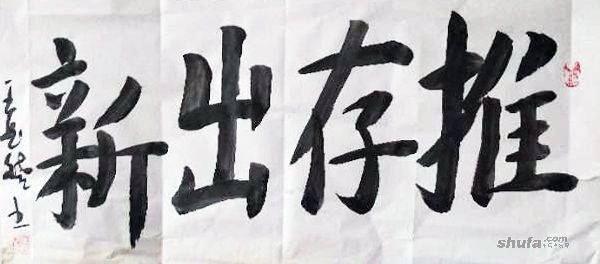 推存出新
王 书
shufa.com